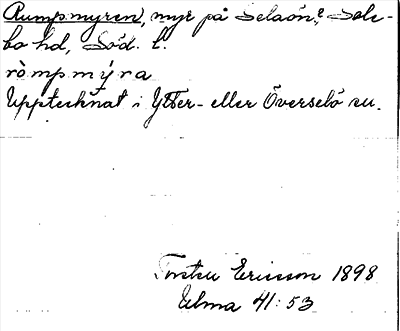 Rumpmyren, myr på Selaön, Sele-
bo hd, Söd. l.
ròmpmýra
Upptecknat i Ytter- eller Överselö sn.
Torsten Ericsson 1898
Ulma 41:53